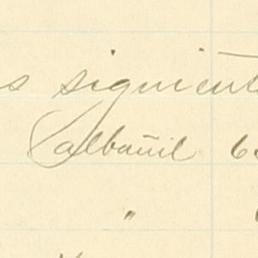 s siguient
Albañil 6
"